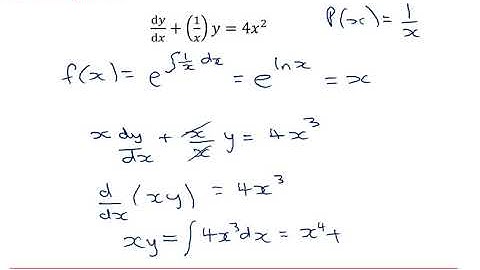 dy/dx + (1/x) y = 4x²
P(x) = 1/x
f(x) = e^∫1/x dx = e^ln x = x
x dy/dx + x/x y = 4x³
d/dx (xy) = 4x³
xy = ∫4x³dx = x⁴+